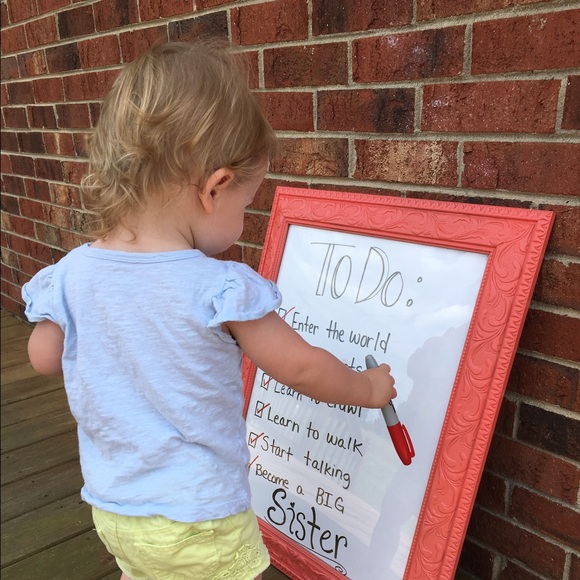 To Do:
Enter the world
Learn to crawl
Learn to walk
Start talking
Become a BIG
Sister